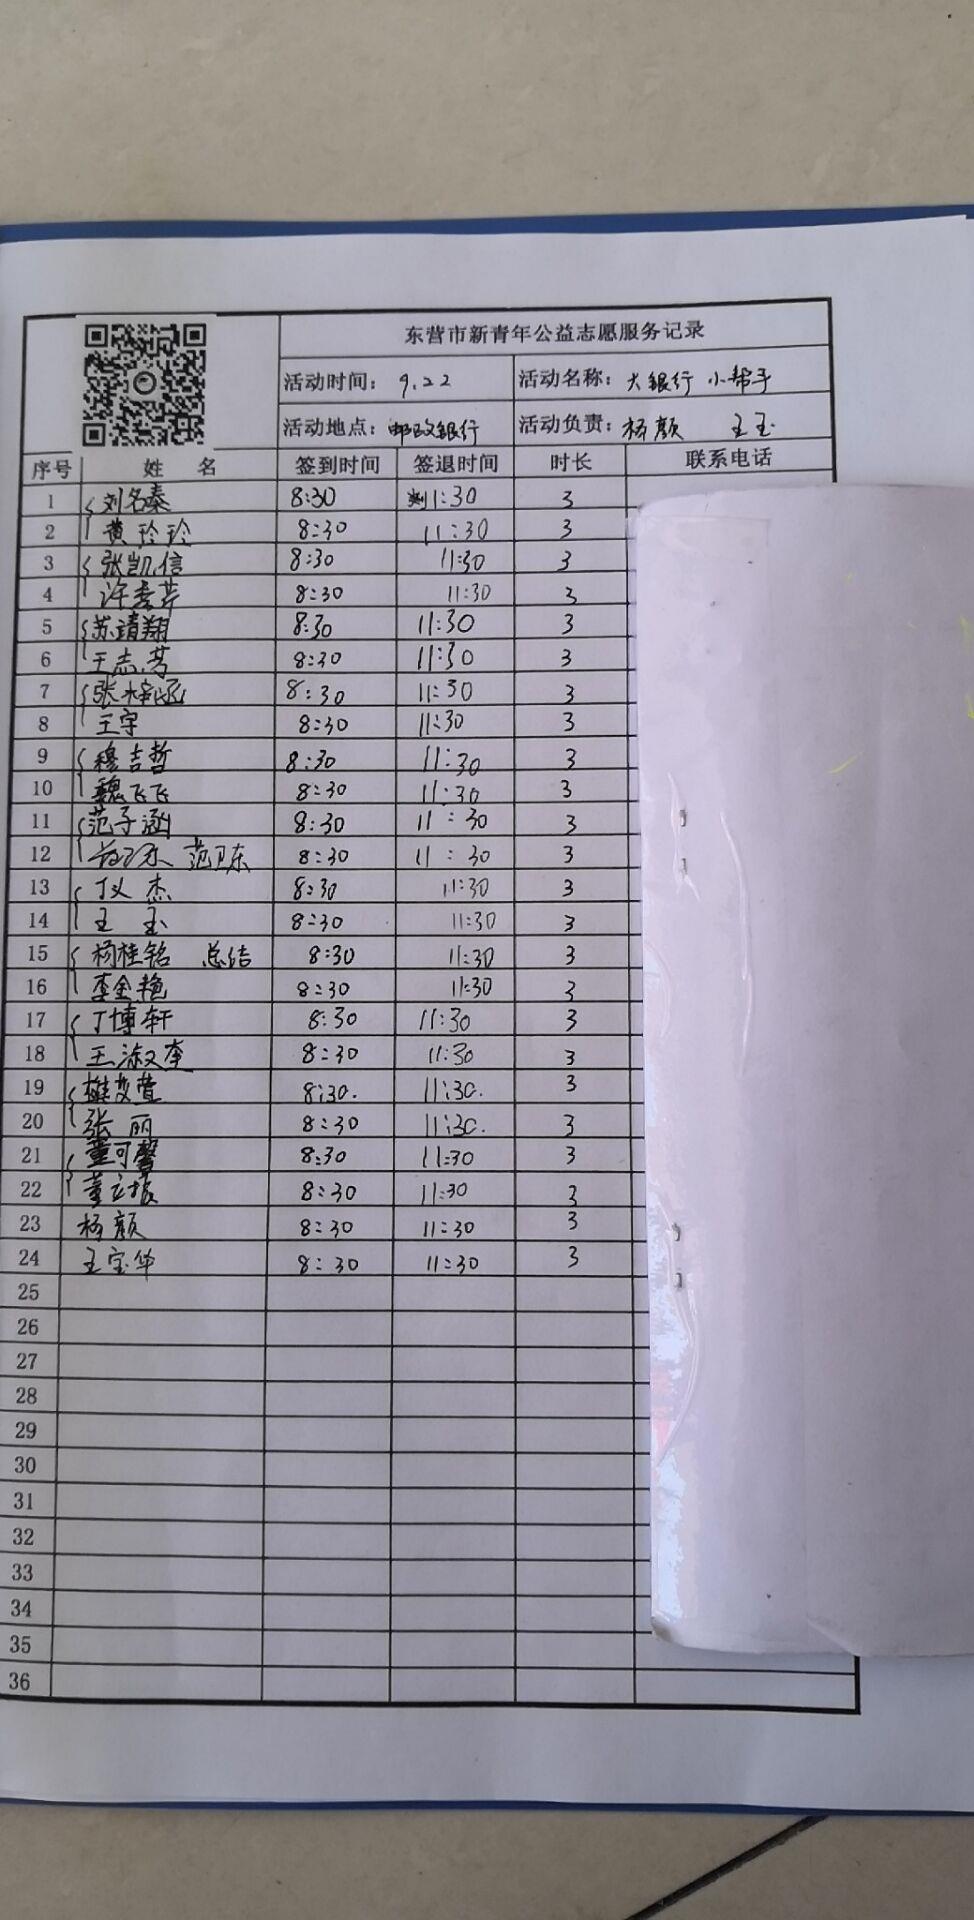 东营市新青年公益志愿服务记录
活动时间： 9.22 活动名称： 大银行 小帮手
活动地点： 邮政银行 活动负责： 杨颜 王玉
序号 姓 名 签到时间 签退时间 时长 联系电话
1 刘名泰 8:30 11:30 3
2 黄玲玲 8:30 11:30 3
3 张凯信 8:30 11:30 3
4 许秀芹 8:30 11:30 3
5 苏靖翔 8:30 11:30 3
6 王志芳 8:30 11:30 3
7 张梓涵 8:30 11:30 3
8 王宇 8:30 11:30 3
9 穆吉哲 8:30 11:30 3
10 魏飞飞 8:30 11:30 3
11 范子涵 8:30 11:30 3
12 范卫东 8:30 11:30 3
13 丁义杰 8:30 11:30 3
14 王 玉 8:30 11:30 3
15 杨桂铭 总结 8:30 11:30 3
16 李金艳 8:30 11:30 3
17 丁博轩 8:30 11:30 3
18 王淑 8:30 11:30 3
19 8:30. 11:30. 3
20 张 丽 8:30 11:30. 3
21 董可馨 8:30 11:30 3
22 董 8:30 11:30 3
23 杨颜 8:30 11:30 3
24 王宝华 8:30 11:30 3
25
26
27
28
29
30
31
32
33
34
35
36